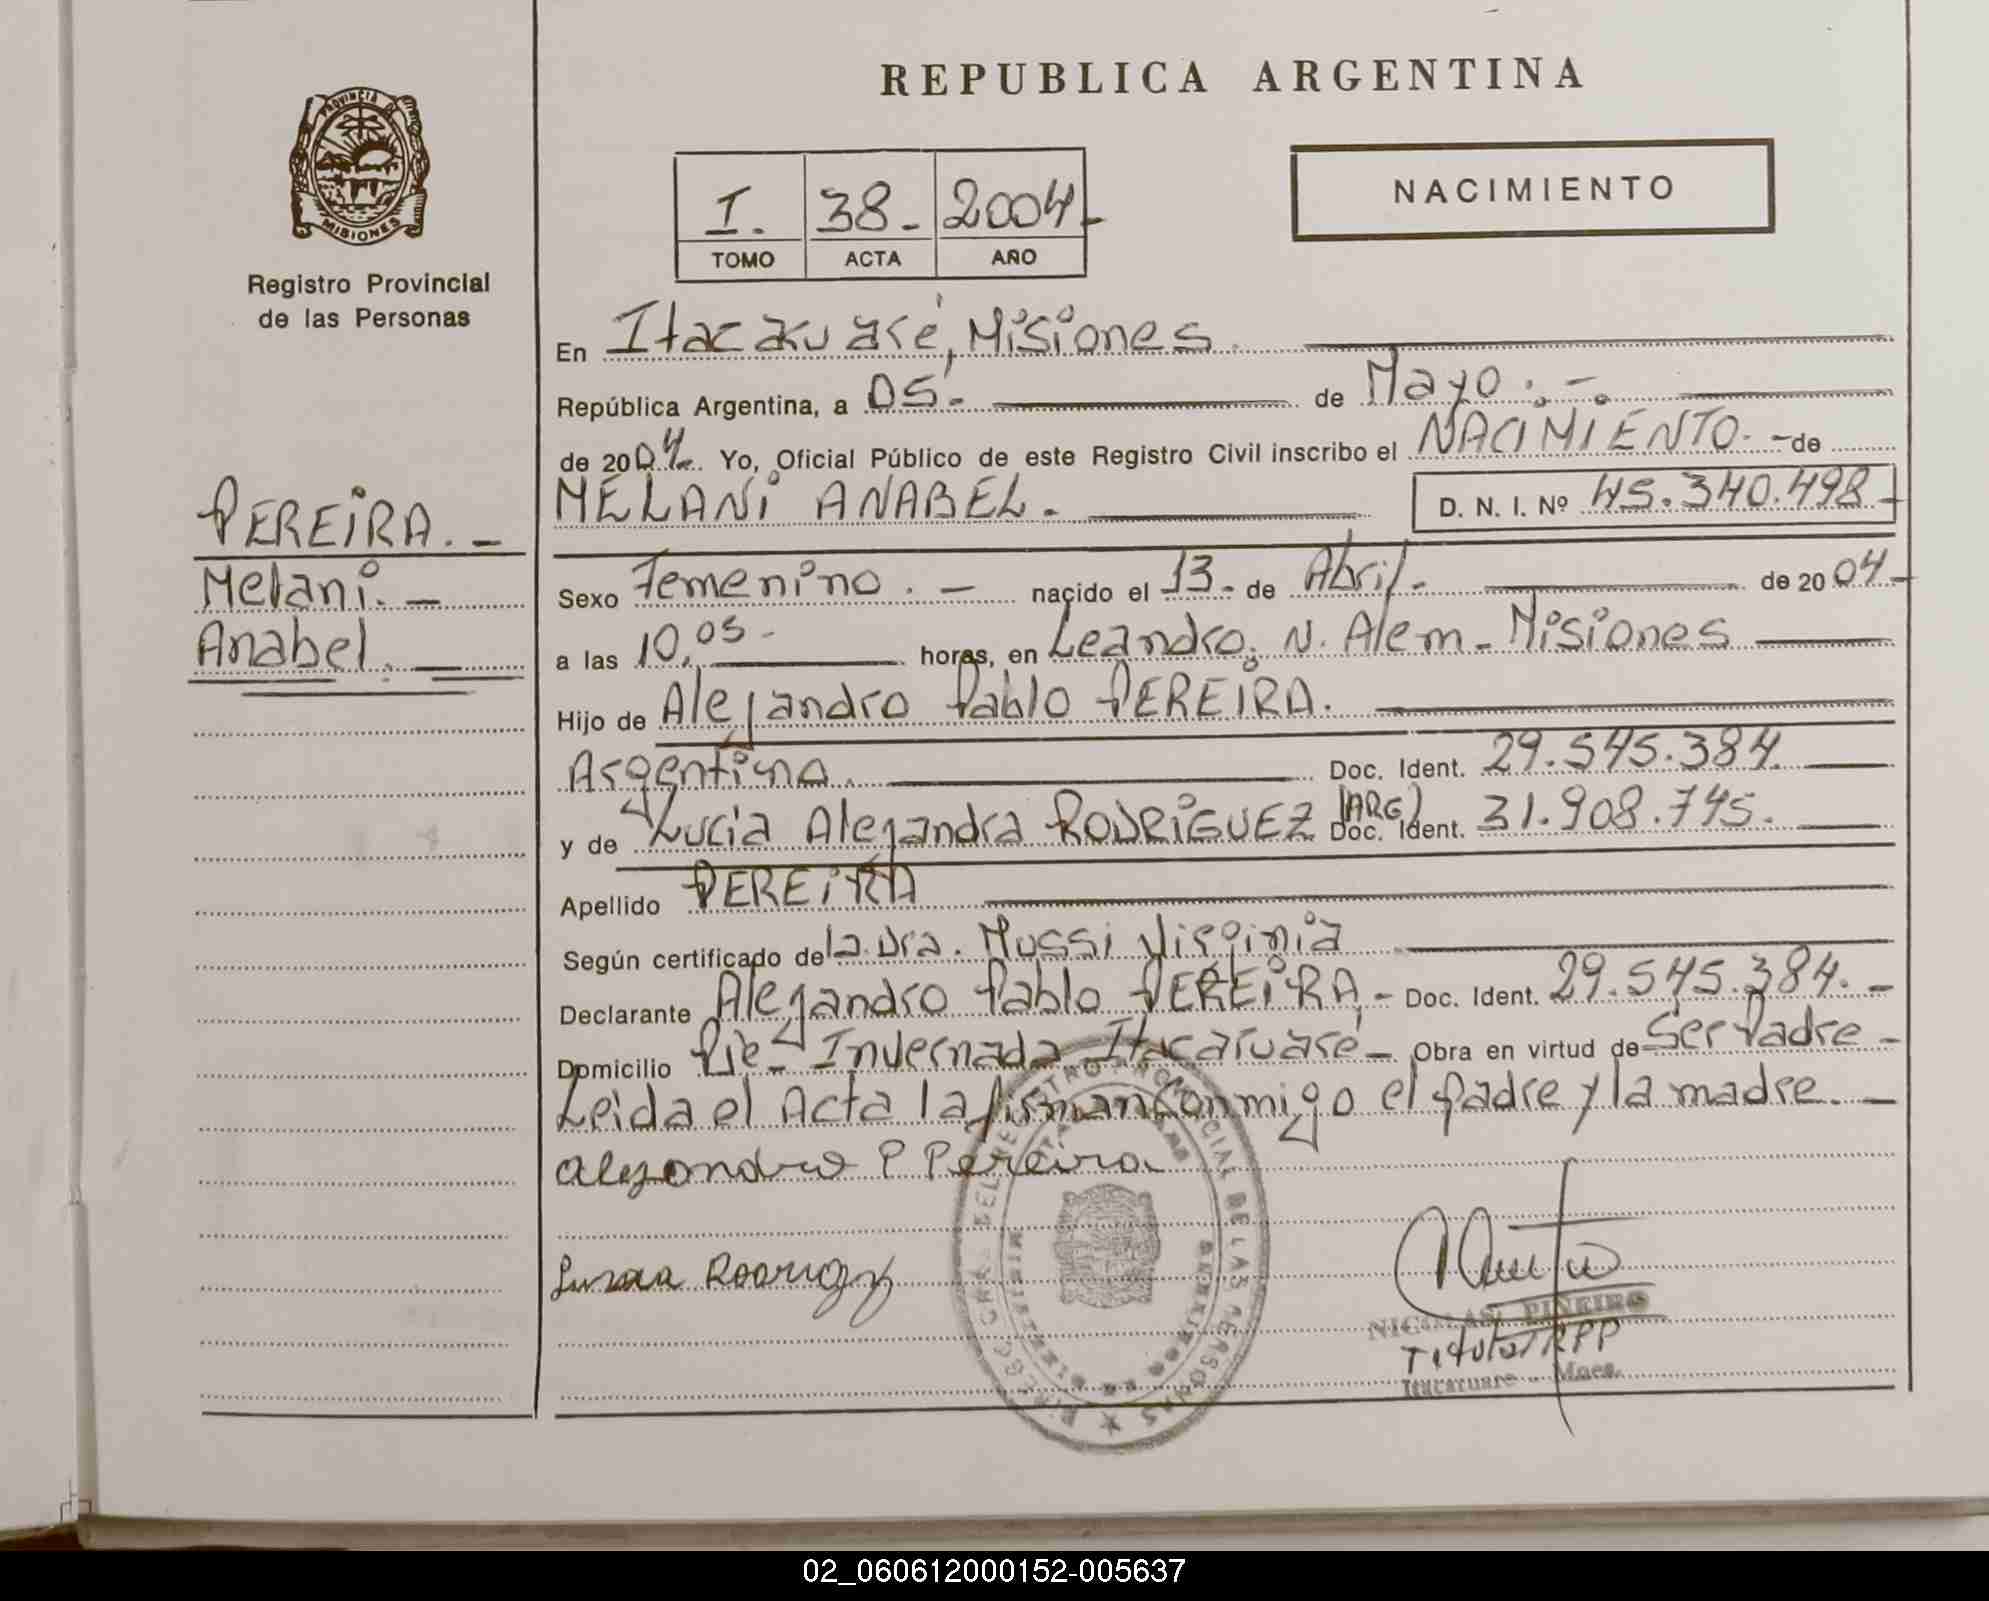 REPUBLICA ARGENTINA
PROVINCIA DE
MISIONES
Registro Provincial
de las Personas
I. 38- 2004-
TOMO ACTA AÑO
NACIMIENTO
En Itacaruaré, Misiones.
República Argentina, a 05.- de Mayo.-.
de 2004. Yo, Oficial Público de este Registro Civil inscribo el NACIMIENTO.- de
MELANi ANABEL.- D. N. I. Nº 45.340.498-
PEREiRA.-
Melani.-
Anabel.
Sexo Femenino.- nacido el 13- de Abril- de 2004-
a las 10,05- horas, en Leandro, N. Alem- Misiones
Hijo de Alejandro Pablo PEREIRA.
Argentina. Doc. Ident. 29.545.384.
y de Lucia Alejandra RODRiGUEZ (ARG) Doc. Ident. 31.908.745.
Apellido PEREiRA
Según certificado de la Dra. Mussi Virginia
Declarante Alejandro Pablo PEREiRA- Doc. Ident. 29.545.384.-
Domicilio Pje- Invernada Itacaruaré- Obra en virtud de Ser Padre-
Leida el Acta la firman conmigo el padre y la madre.-
Alejandro P Pereira
NICOLAS PINEIRO
Titular RPP
Itacaruare - Mnes.
02_060612000152-005637